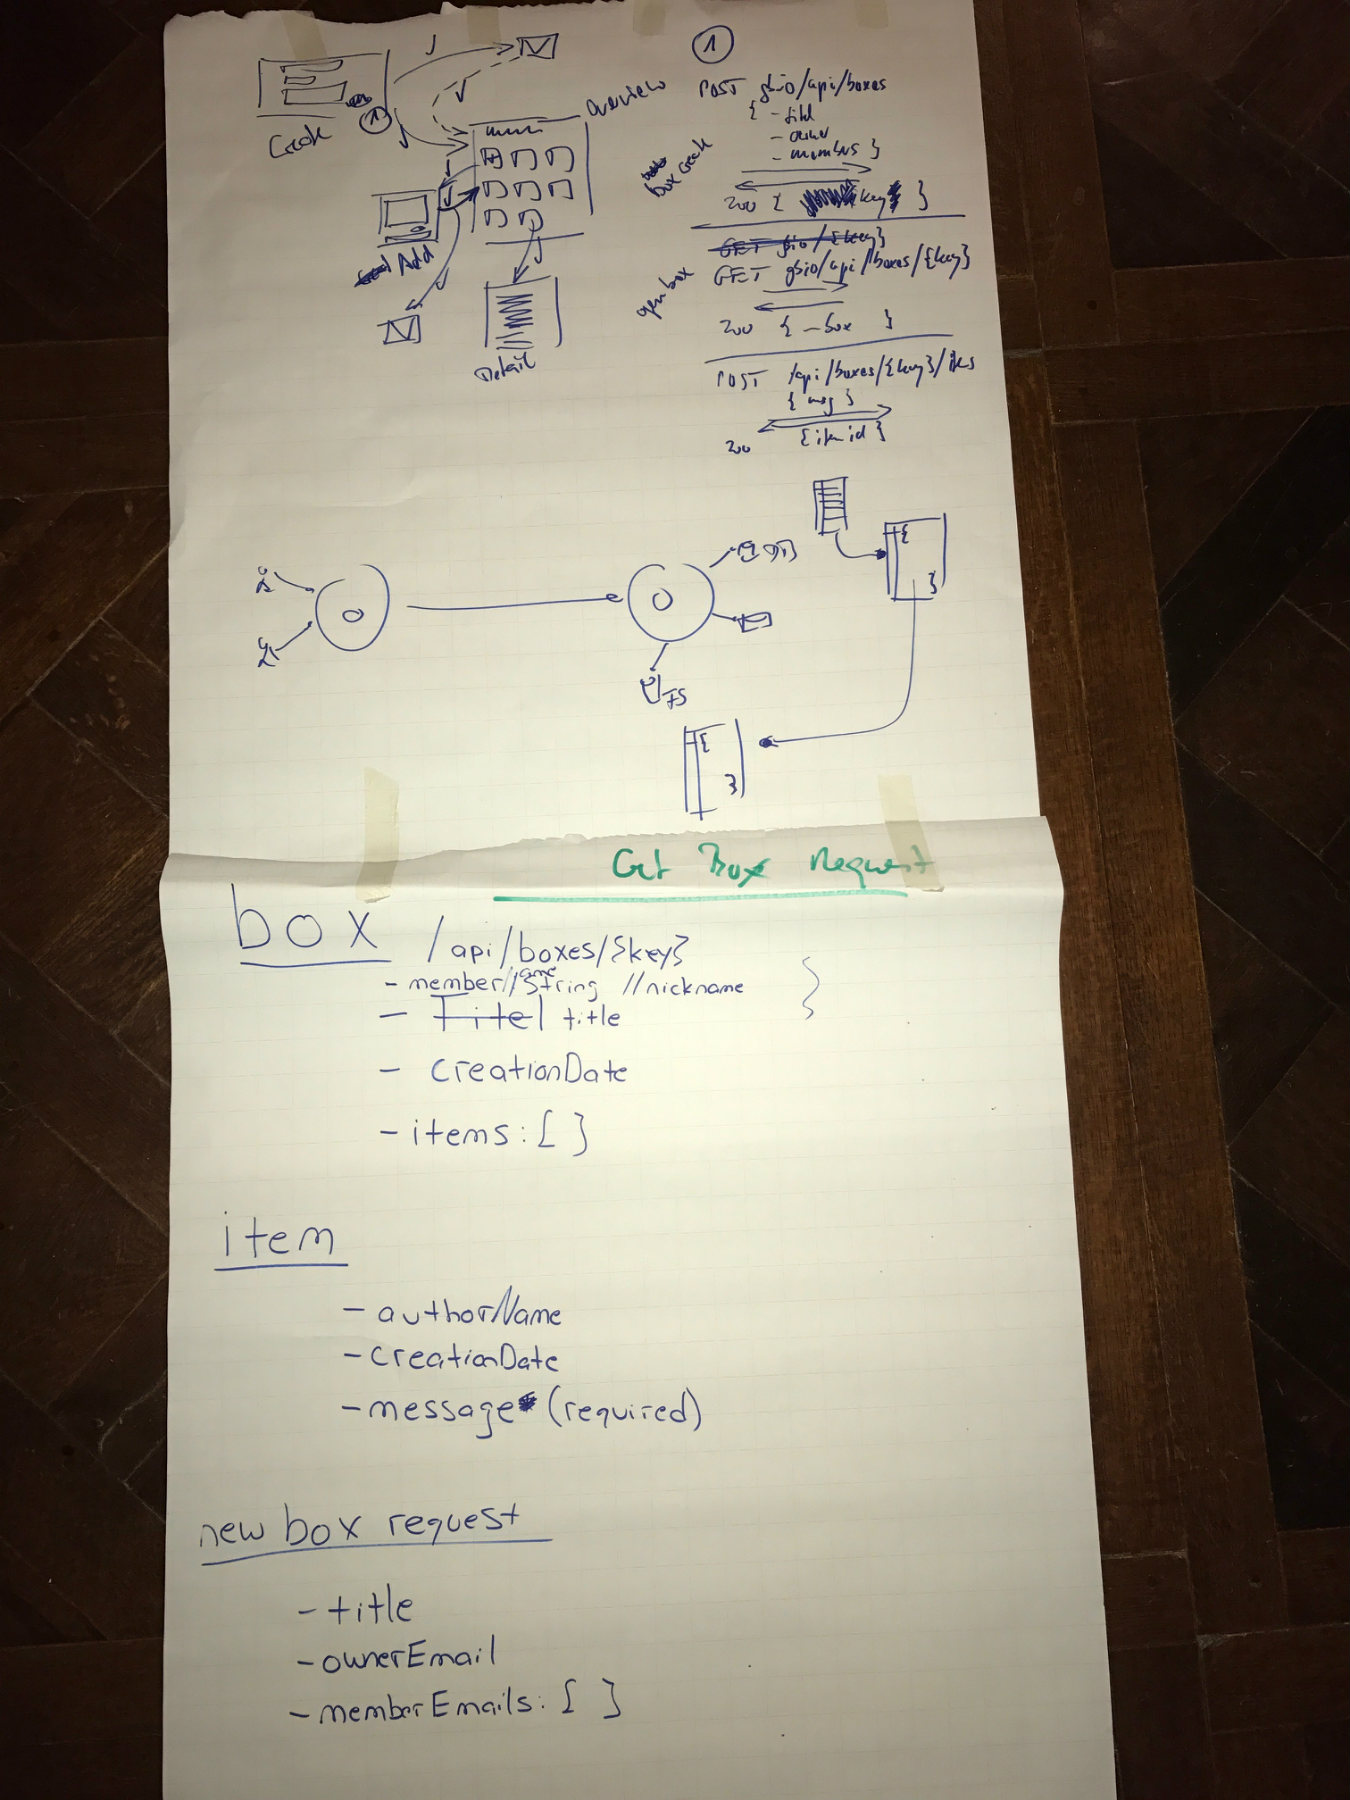 Create
1
Overview
Add
Detail
1
POST gbio/api/boxes
{ - titel
- owner
- members }
box create
200 { key }
GET gbio/{key}
GET gbio/api/boxes/{key}
open box
200 { - box }
POST /api/boxes/{key}/items
{ msg }
200 { item id }
DB
FS
{
}
{
}
Get Box Request
box
/api/boxes/{key}
- memberName String // nickname
- Titel title
- creationDate
- items: [ ]
}
item
- authorName
- creationDate
- message (required)
new box request
- title
- ownerEmail
- memberEmails: [ ]